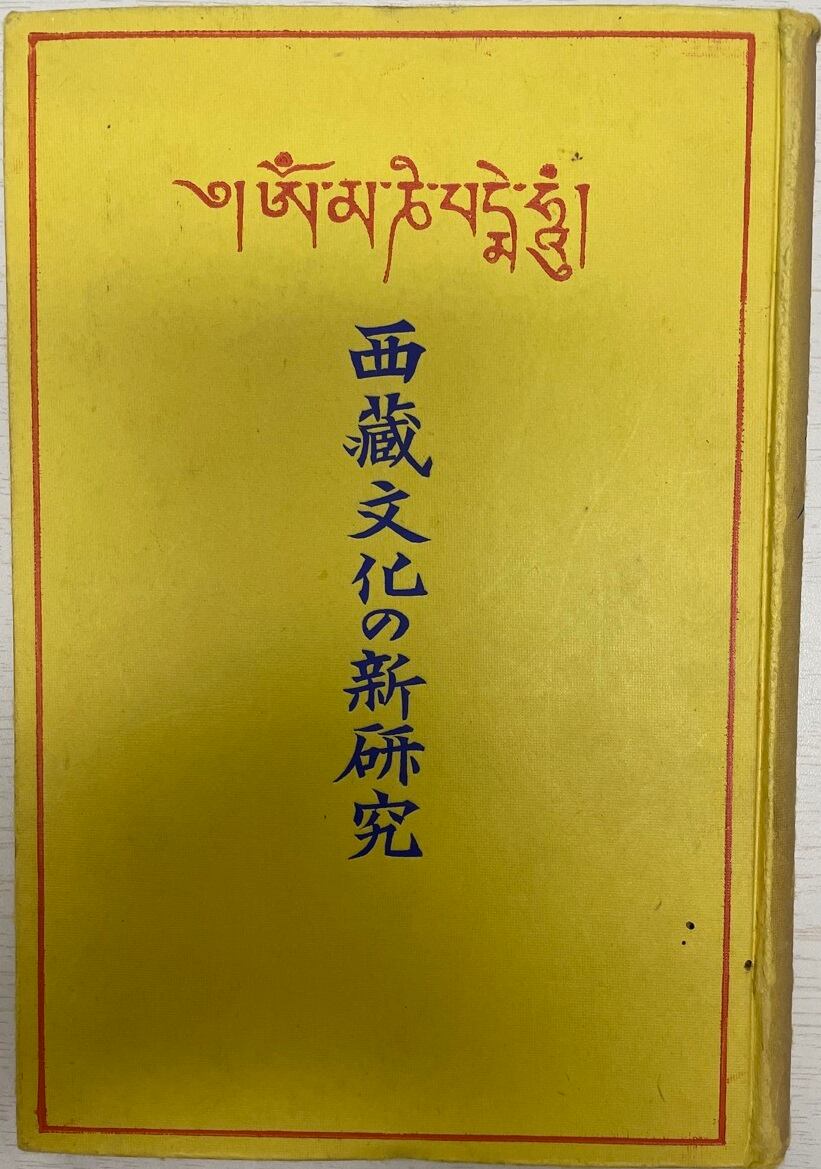 ༄།ཨོཾ་མ་ཎི་པདྨེ་ཧཱུཾ།
西藏文化の新研究